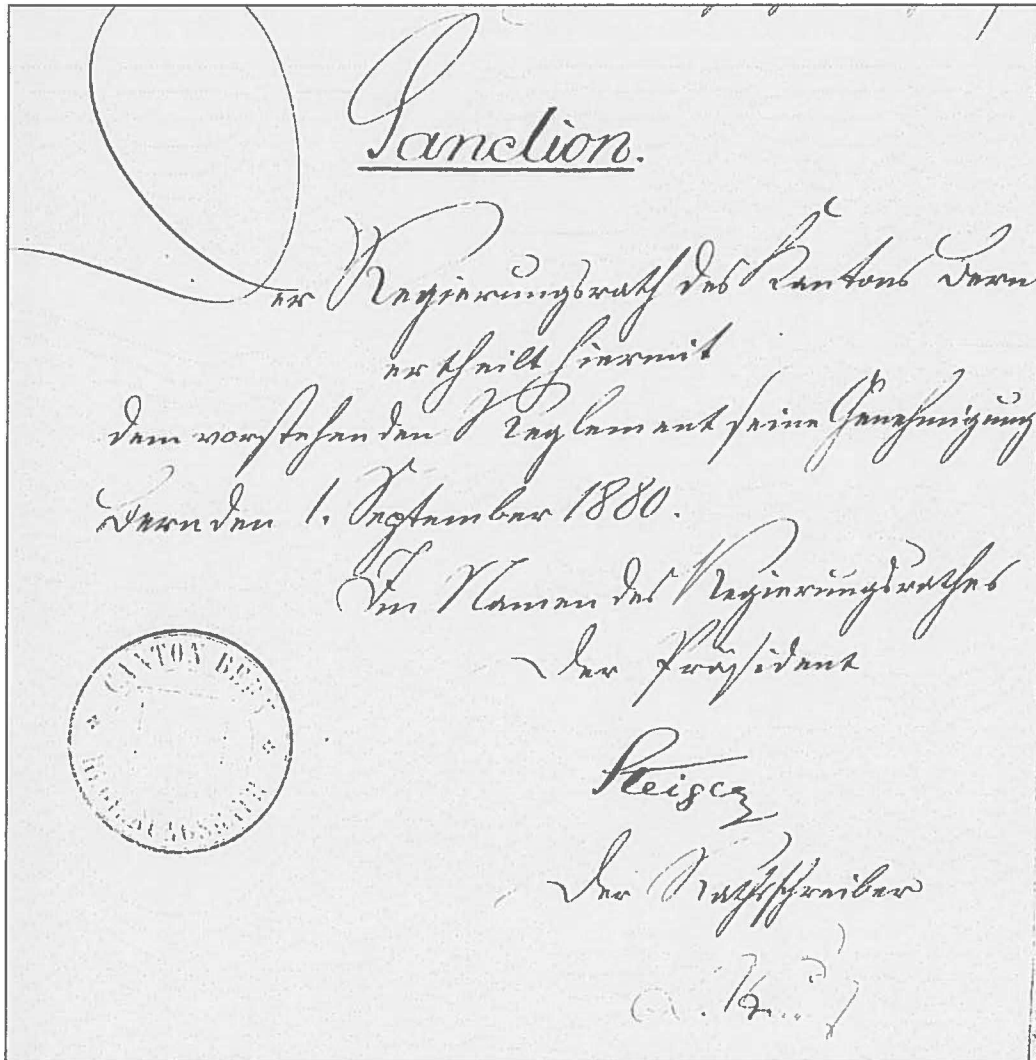 Sanction.
Der Regierungsrath des Kantons Bern
ertheilt hiermit
dem vorstehenden Reglement seine Genehmigung
Bern den 1. September 1880.
Im Namen des Regierungsrathes
Der Präsident
Steiger
Der Rathsschreiber
CANTON BERN
REGIERUNGSRATH